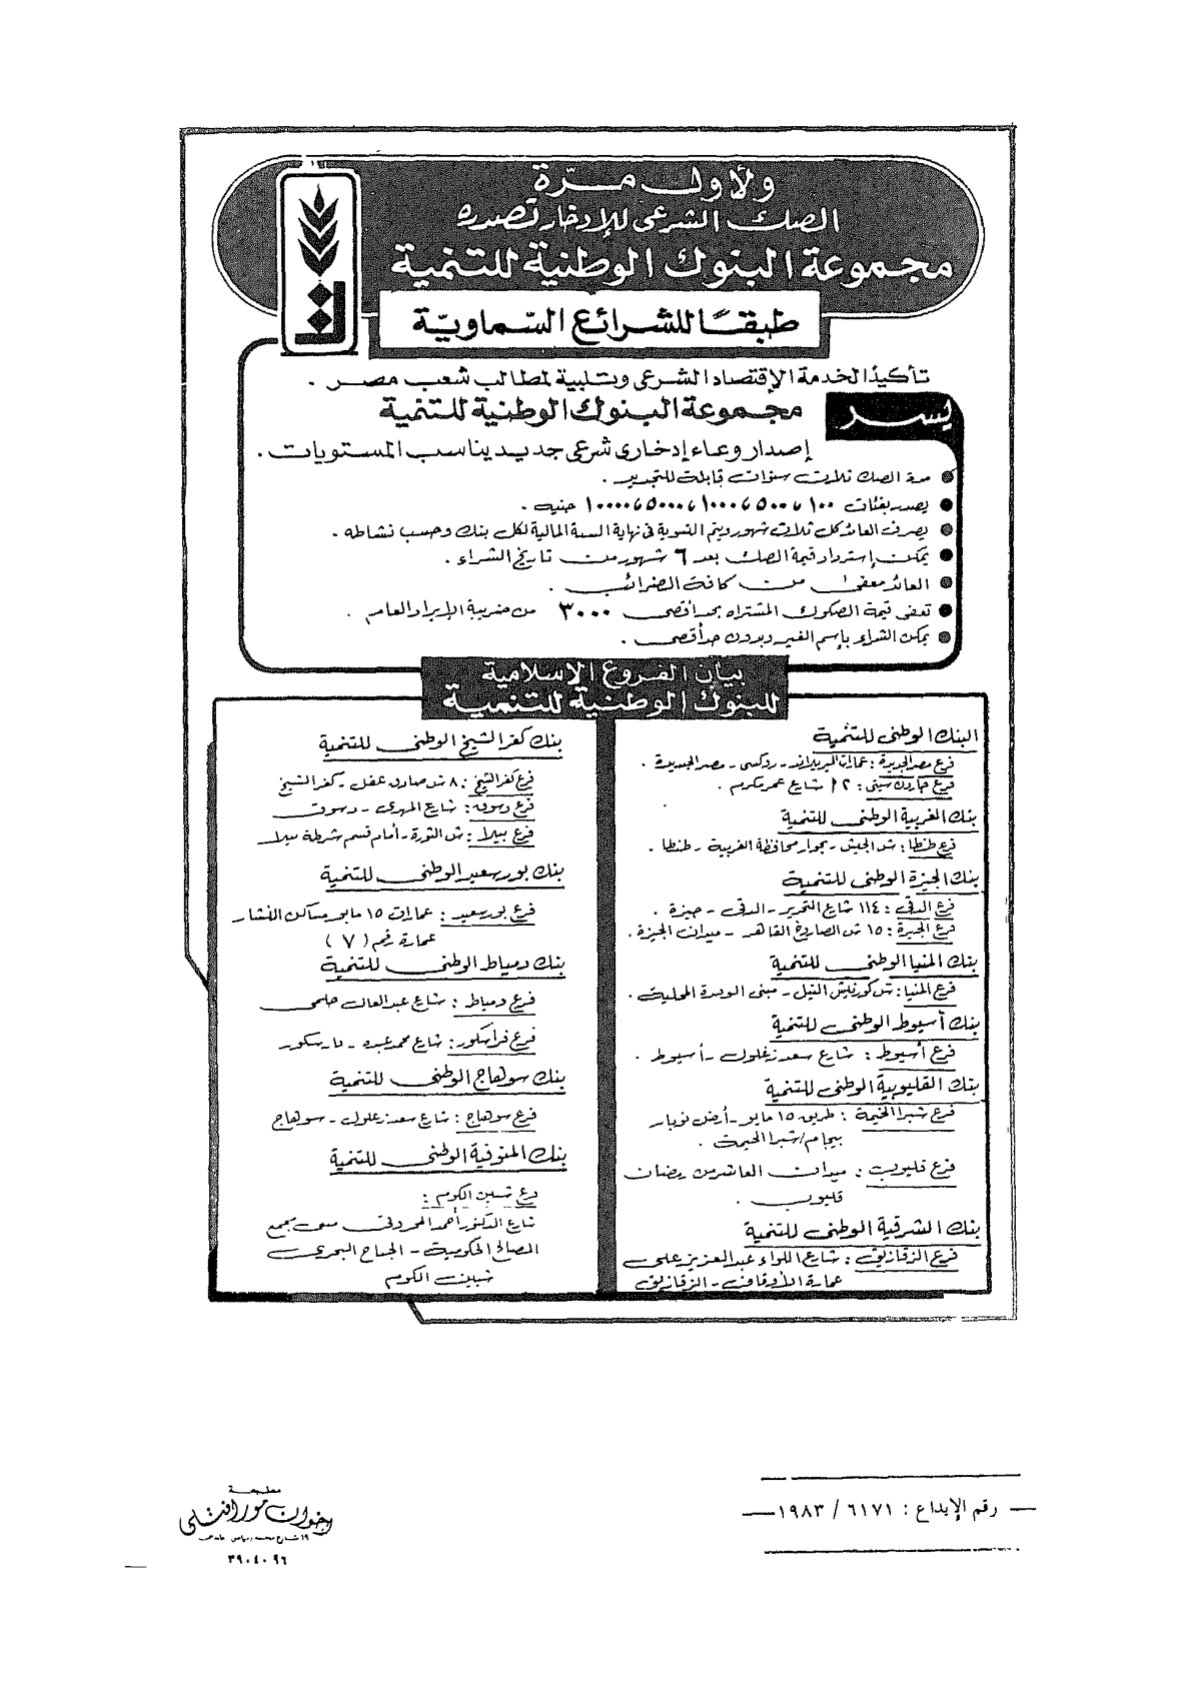 ولأول مرّة
الصك الشرعى للإدخار تصدره
مجموعة البنوك الوطنية للتنمية
طبقًا للشرائع السّماويّة
تأكيدًا لخدمة الإقتصاد الشرعى وتلبية لمطالب شعب مصر .
يسر مجموعة البنوك الوطنية للتنمية
إصدار وعاء إدخارى شرعى جديد يناسب المستويات .
● مدة الصك ثلاث سنوات قابلة للتجديد .
● يصدر بفئات ١٠٠ ، ٥٠٠ ، ١٠٠٠ ، ٥٠٠٠ ، ١٠٠٠٠ جنيه .
● يصرف العائد كل ثلاث شهور ويتم التسوية فى نهاية السنة المالية لكل بنك وحسب نشاطه .
● يمكن إسترداد قيمة الصك بعد ٦ شهور من تاريخ الشراء .
● العائد معفى من كافة الضرائب .
● تعفى قيمة الصكوك المشتراه بحد أقصى ٣٠٠٠ من ضريبة الإيراد العام .
● يمكن الشراء بإسم الغير وبدون حد أقصى .
بيان الفروع الاسلامية
للبنوك الوطنية للتنمية
البنك الوطنى للتنمية
فرع مصر الجديدة : عمارات الميريلاند - روكسى - مصر الجديدة .
فرع جاردن سيتى : ١٢ شارع عمر مكرم .
بنك الغربية الوطنى للتنمية
فرع طنطا : ش الجيش - بجوار محافظة الغربية - طنطا .
بنك الجيزة الوطنى للتنمية
فرع الدقى : ١١٤ شارع التحرير - الدقى - جيزة .
فرع الجيزة : ١٥ ش الصاروخ القاهر - ميدان الجيزة .
بنك المنيا الوطنى للتنمية
فرع المنيا : ش كورنيش النيل - مبنى الوحدة المحلية .
بنك أسيوط الوطنى للتنمية
فرع أسيوط : شارع سعد زغلول - أسيوط .
بنك القليوبية الوطنى للتنمية
فرع شبرا الخيمة : طريق ١٥ مايو - أرض نوبار
بيجام / شبرا الخيمة .
فرع قليوب : ميدان العاشر من رمضان
قليوب .
بنك الشرقية الوطنى للتنمية
فرع الزقازيق : شارع اللواء عبد العزيز على
عمارة الأوقاف - الزقازيق
بنك كفر الشيخ الوطنى للتنمية
فرع كفر الشيخ : ٨ ش صادق عقل - كفر الشيخ
فرع دسوق : شارع المهدى - دسوق
فرع بيلا : ش الثورة - أمام قسم شرطة بيلا
بنك بورسعيد الوطنى للتنمية
فرع بورسعيد : عمارات ١٥ مايو مساكن
عمارة رقم ( ٧ )
بنك دمياط الوطنى للتنمية
فرع دمياط : شارع عبد العال حلمى
فرع فارسكور : شارع محمد عبده - فارسكور
بنك سوهاج الوطنى للتنمية
فرع سوهاج : شارع سعد زغلول - سوهاج
بنك المنوفية الوطنى للتنمية
فرع شبين الكوم :
شارع الدكتور أحمد مبنى مجمع
المصالح الحكومية - الجناح البحرى
شبين الكوم
رقم الإيداع : ٦١٧١ / ١٩٨٣
مطبعة
إخوان مورافتلى
١٩ شارع محمد رياض
٣٩٠٤٠٩٦